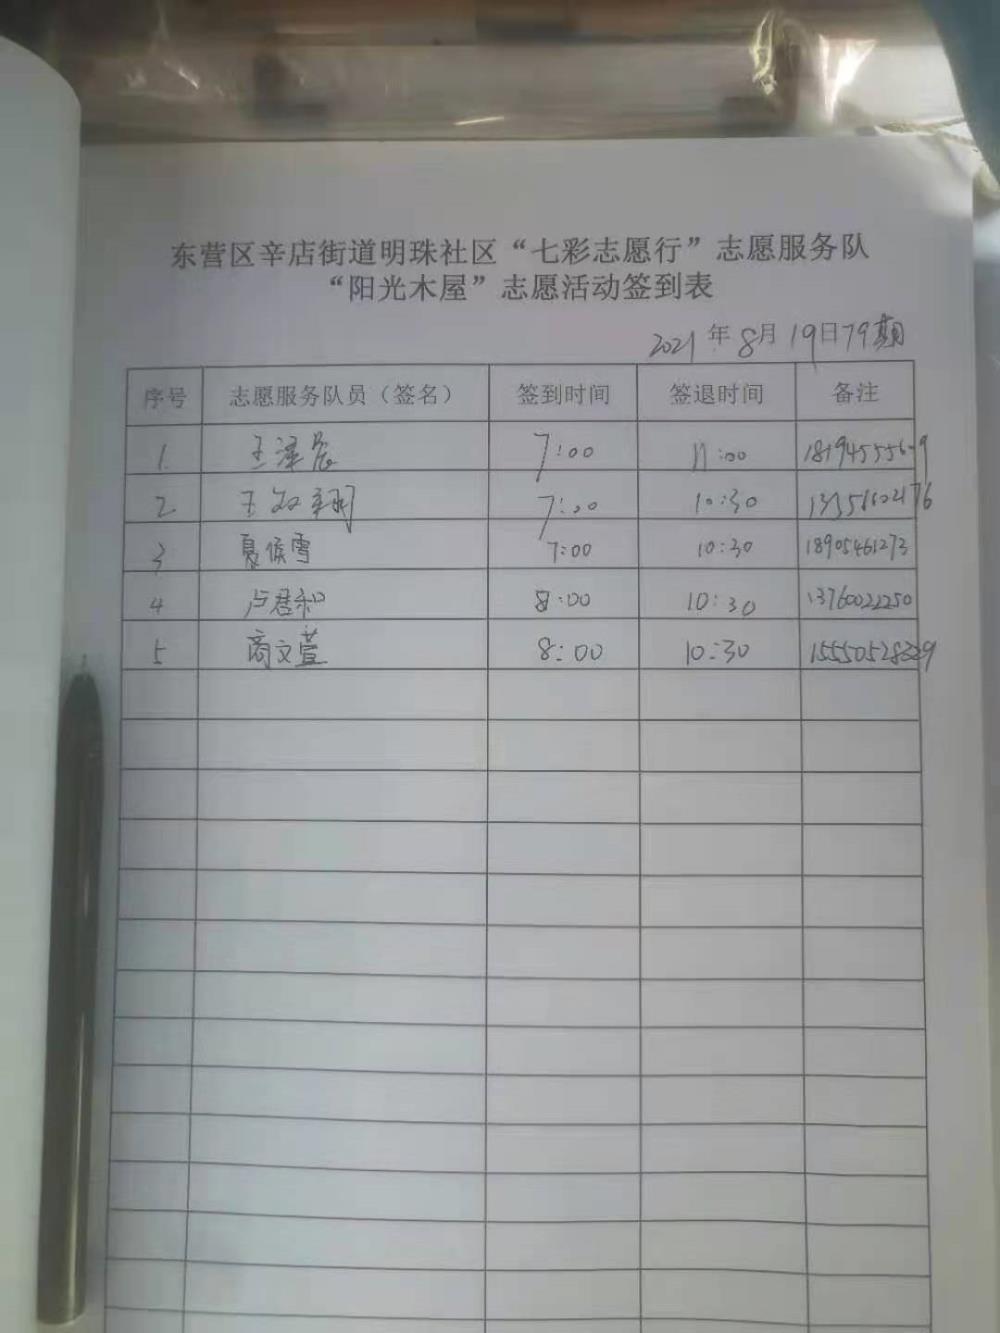 东营区辛店街道明珠社区“七彩志愿行”志愿服务队
“阳光木屋”志愿活动签到表
2021年8月19日79期
序号 志愿服务队员（签名） 签到时间 签退时间 备注
1 王泽宸 7:00 11:00
2 王知翔 7:00 10:30
3 夏侯雪 7:00 10:30 18905461273
4 卢君和 8:00 10:30 13760022250
5 商文萱 8:00 10:30